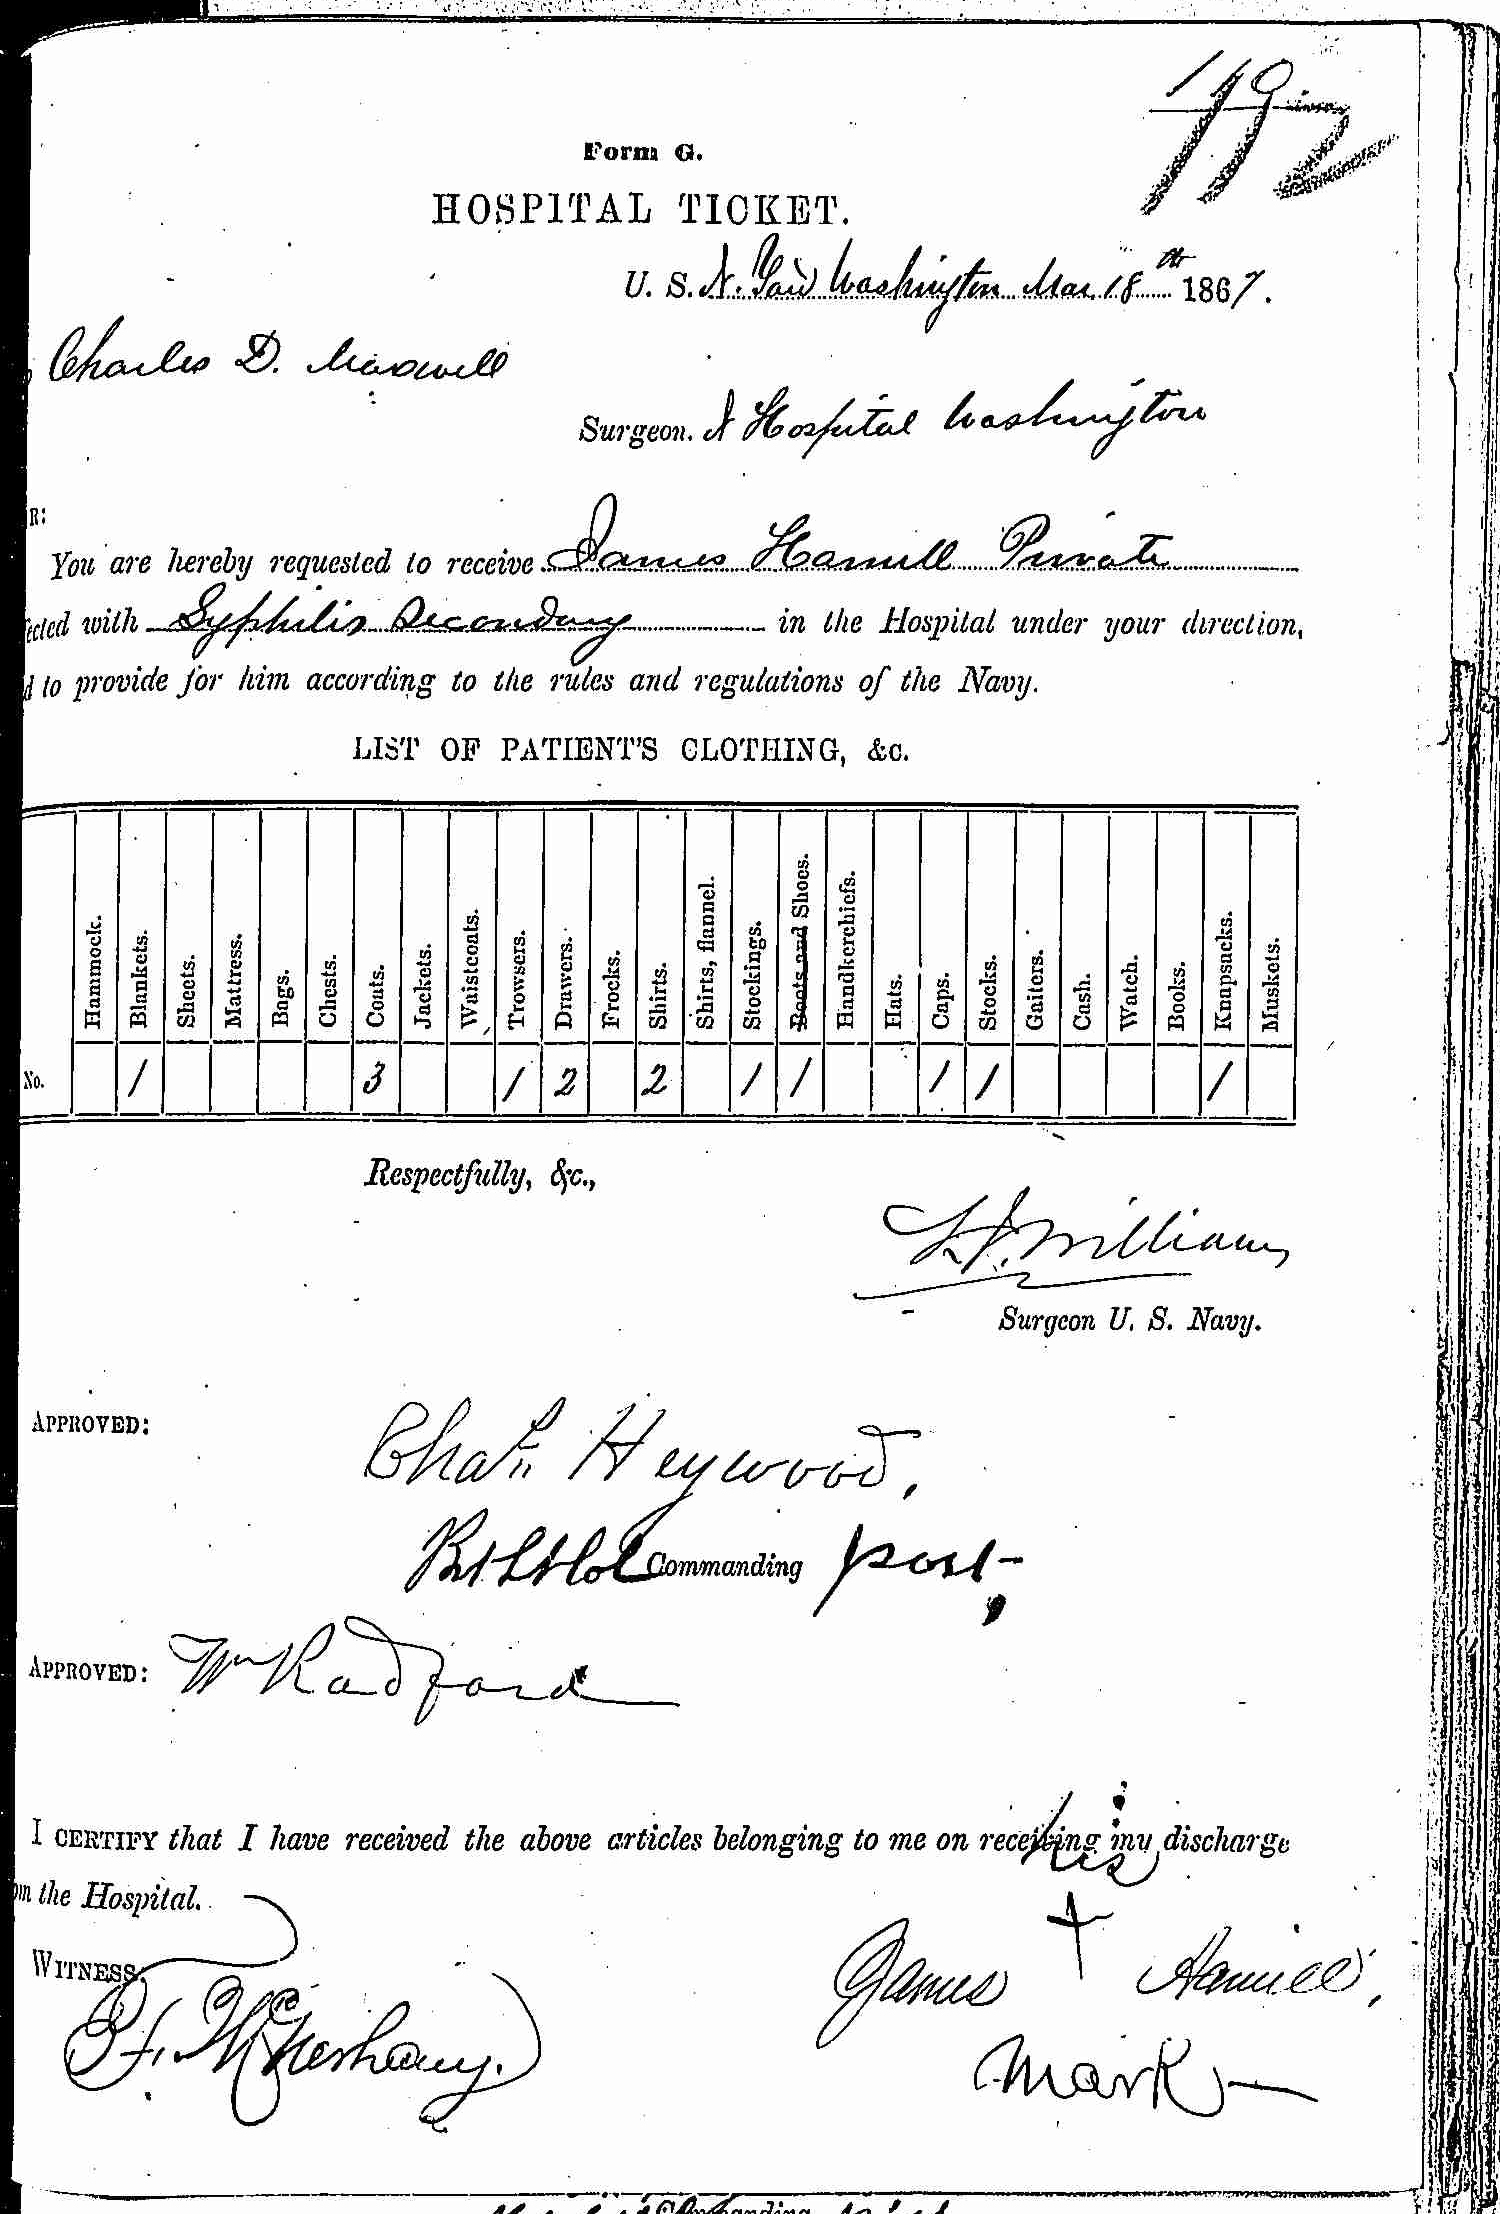 192
Form G.
HOSPITAL TICKET.
U. S. N. Yard Washington Mar. 18th 1867.
Charles D. Maxwell
Surgeon. N Hospital Washington
R:
You are hereby requested to receive James Hamill Private
ected with Syphilis Secondary in the Hospital under your direction,
d to provide for him according to the rules and regulations of the Navy.
LIST OF PATIENT'S CLOTHING, &c.
Hammock. Blankets. Sheets. Mattress. Bags. Chests. Coats. Jackets. Waistcoats. Trowsers. Drawers. Frocks. Shirts. Shirts, flannel. Stockings. Boots and Shoes. Handkerchiefs. Hats. Caps. Stocks. Gaiters. Cash. Watch. Books. Knapsacks. Muskets.
No. 1 3 1 2 2 1 1 1 1 1
Respectfully, &c.,
Williams
Surgeon U. S. Navy.
APPROVED:
Chas. Heywood,
Bt Lt Col Commanding post,
APPROVED: Wm Radford
I CERTIFY that I have received the above articles belonging to me on receiving my discharge
om the Hospital.
his
WITNESS:
James + Hamill,
mark